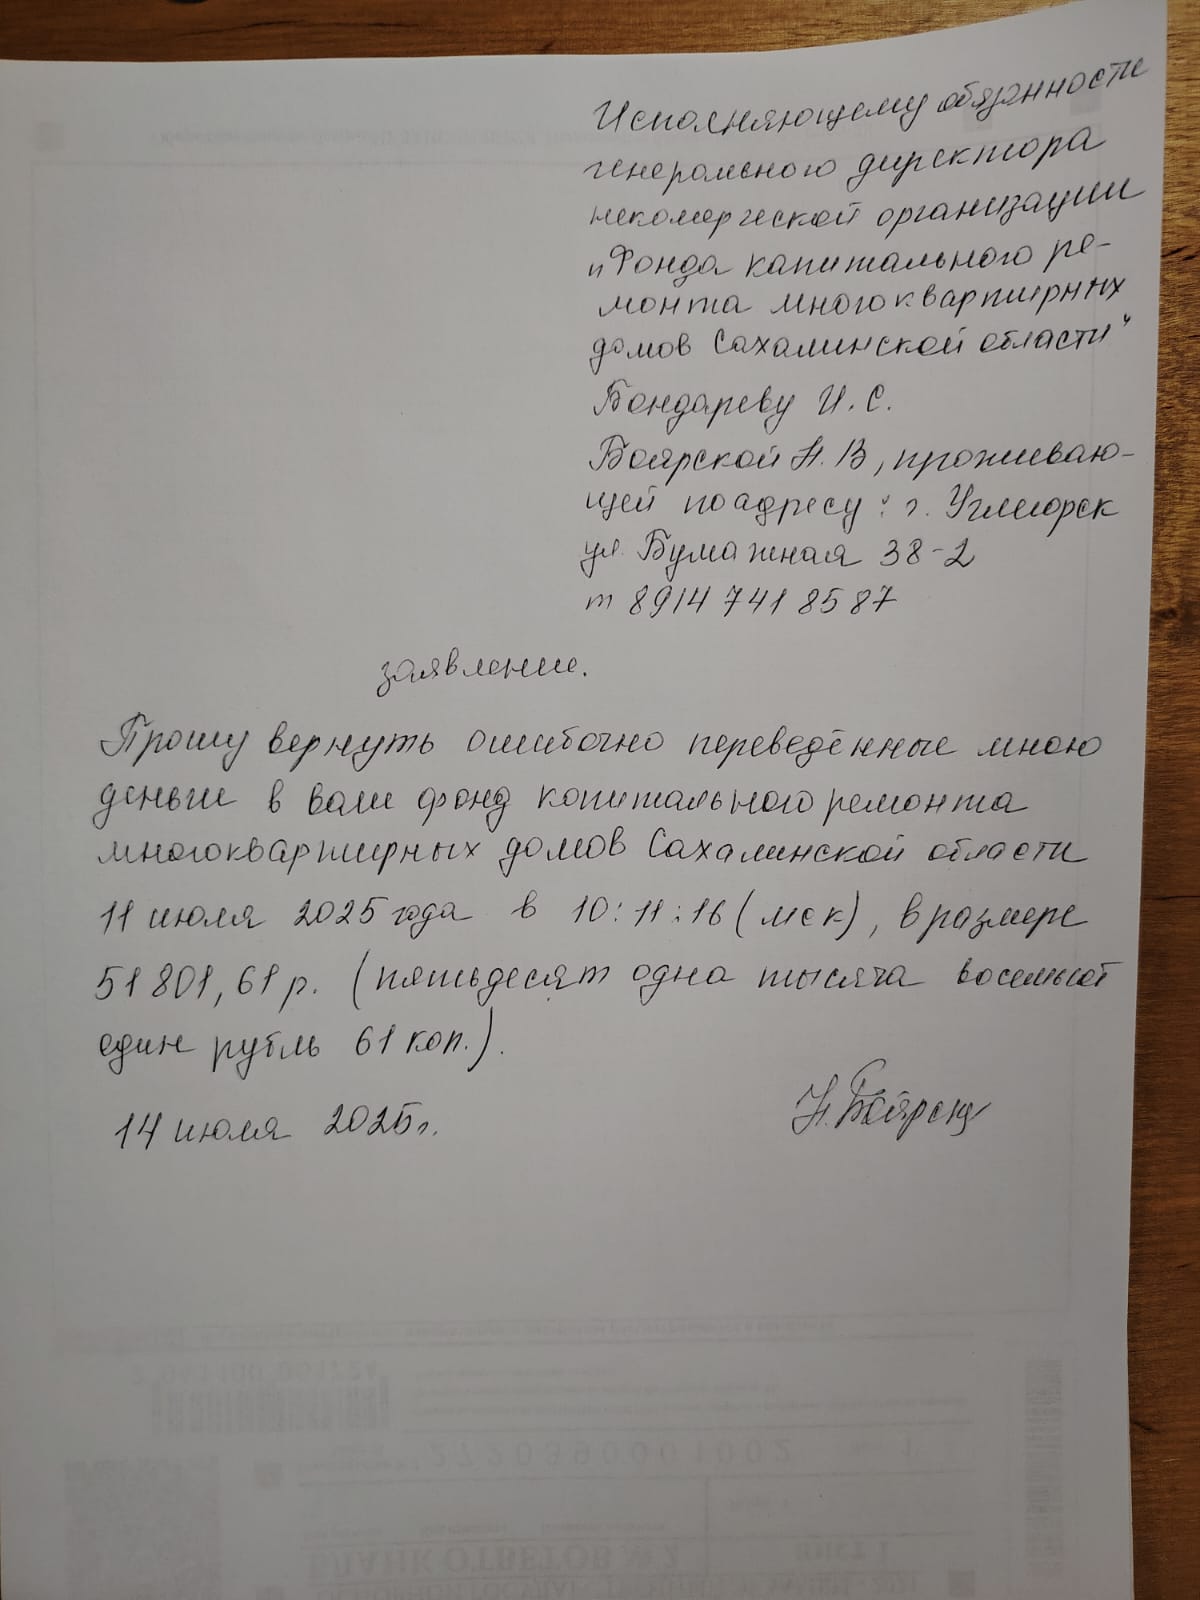 Исполняющему обязанности
генерального директора
некомерческой организации
"Фонда капитального ре-
монта многоквартирных
домов Сахалинской области"
Бондареву И. С.
Боярской Н. В, проживаю-
щей по адресу: г. Углегорск
ул. Бумажная 38-2
т 8914 741 85 87
заявление.
Прошу вернуть ошибочно переведённые мною
деньги в ваш фонд капитального ремонта
многоквартирных домов Сахалинской области
11 июля 2025 года в 10:11:16 (мск), в размере
51 801,61 р. (пятьдесят одна тысяча восемьсот
один рубль 61 коп.).
14 июля 2025 г.
Н. Боярск
2720390001002
БЛАНК ОТВЕТОВ № 2
ЛИСТ 1